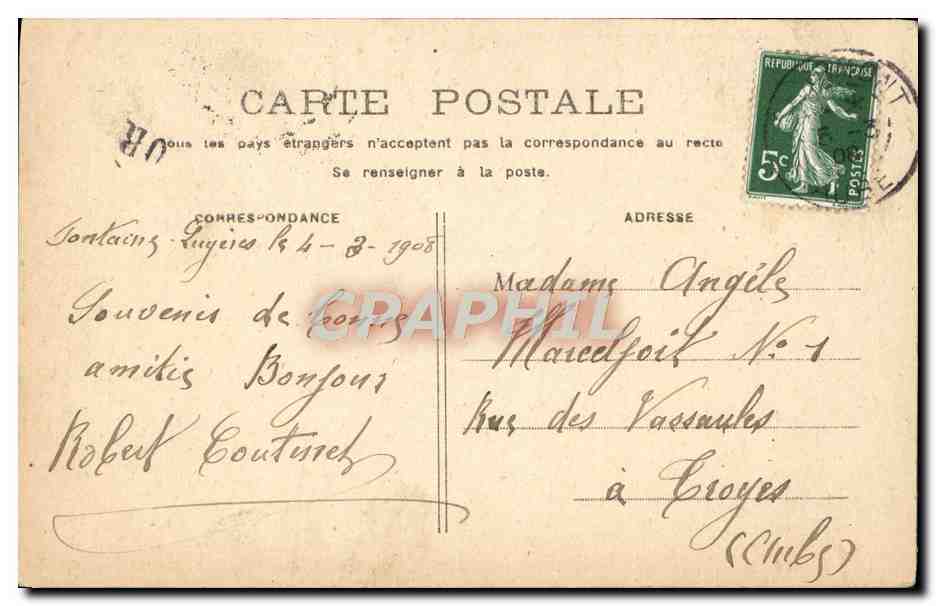 CARTE POSTALE
Tous les pays étrangers n'acceptent pas la correspondance au recto
Se renseigner à la poste.
UR
REPUBLIQUE FRANÇAISE
5c
POSTES
CORRESPONDANCE
Fontaine-Lugères le 4-3-1908
Souvenir de bonne
amitié Bonjour
Robert
ADRESSE
Madame Angèle
No 1
Rue des Vassaules
à Troyes
(Aube)
CPAPHIL